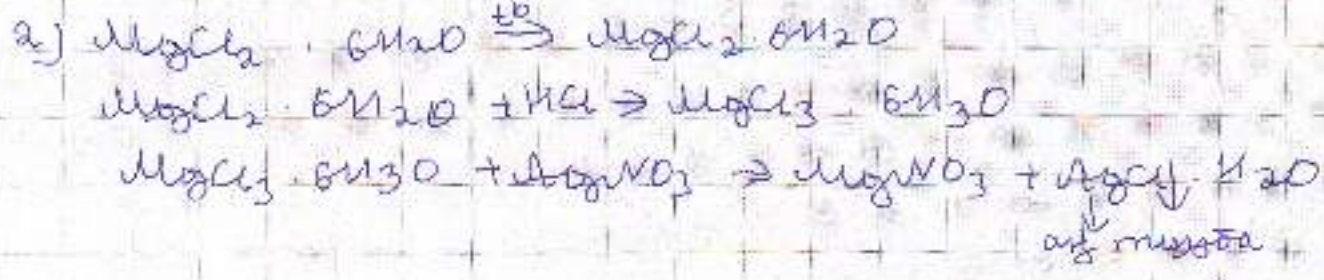 2) MgCl₂ · 6H₂O t°⇒ MgCl₂ · 6H₂O
MgCl₂ · 6H₂O + HCl → MgCl₃ · 6H₃O
MgCl₃ · 6H₃O + AgNO₃ → MgNO₃ + AgCl↓ · H₂O
ақ тұнба